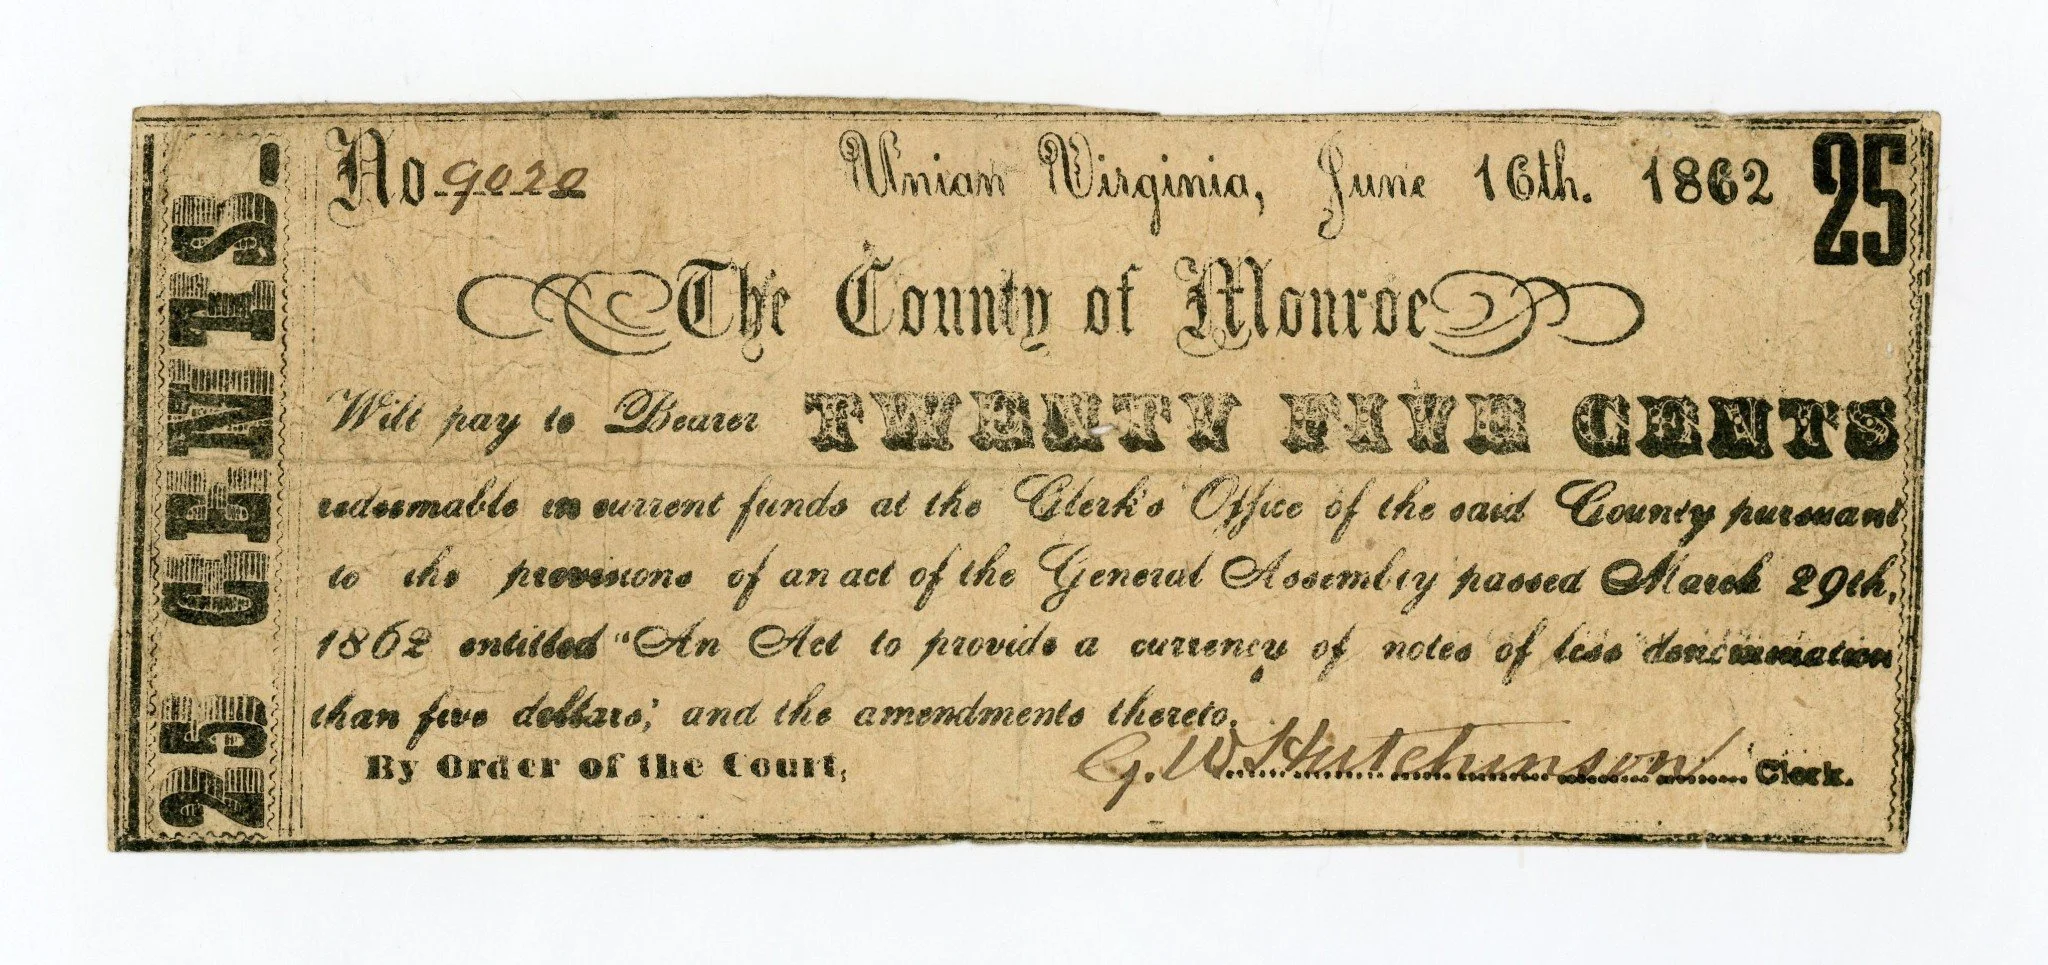 25 CENTS.
No 9020 Union Virginia, June 16th. 1862 25
The County of Monroe
Will pay to Bearer TWENTY FIVE CENTS
redeemable in current funds at the Clerk's Office of the said County pursuant
to the provisions of an act of the General Assembly passed March 29th,
1862 entitled "An Act to provide a currency of notes of less denomination
than five dollars,' and the amendments thereto.
By Order of the Court, G. W. Hutchinson Clerk.